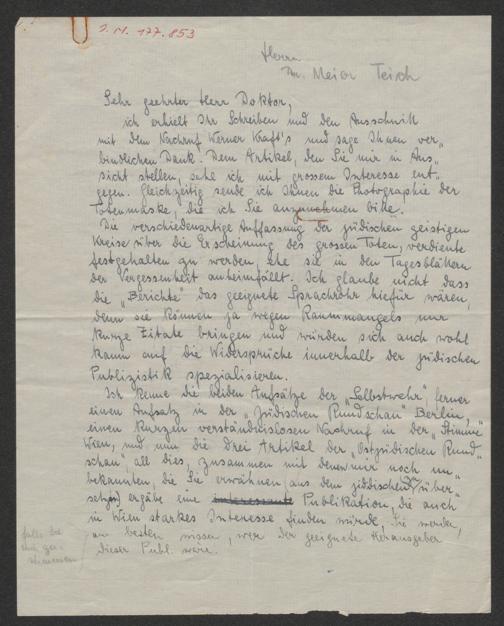 J.N. 177.853
Herrn
Dr. Meier Teich
Sehr geehrter Herr Doktor,
ich erhielt Ihr Schreiben und den Ausschnitt
mit dem Nachruf Werner Kraft's und sage Ihnen ver-
bindlichen Dank. Dem Artikel, den Sie mir in Aus-
sicht stellen, sehe ich mit grossem Interesse ent-
gegen. Gleichzeitig sende ich Ihnen die Photographie der
Totenmaske, die ich Sie anzunehmen bitte.
Die verschiedenartige Auffassung der jüdischen geistigen
Kreise über die Erscheinung des grossen Toten, verdiente
festgehalten zu werden, ehe sie in den Tagesblättern
der Vergessenheit anheimfällt. Ich glaube nicht dass
die „Berichte" das geeignete Sprachrohr hiefür wären,
denn sie können ja wegen Raummangels nur
kurze Zitate bringen und würden sich auch wohl
kaum auf die Widersprüche innerhalb der jüdischen
Publizistik spezialisieren.
Ich kenne die beiden Aufsätze der „Selbstwehr", ferner
einen Aufsatz in der „Jüdischen Rundschau" Berlin,
einen kurzen verständnislosen Nachruf in der „Stimme"
Wien, und nun die drei Artikel der „Ostjüdischen Rund-
schau", all dies, zusammen mit denen mir noch un-
bekannten, die Sie erwähnen, (aus dem jiddischen über-
setzt) ergäbe eine interessante Publikation, die auch
in Wien starkes Interesse finden würde, Sie werden,
am besten wissen, wer der geeignete Herausgeber
dieser Publ. wäre.
falls Sie